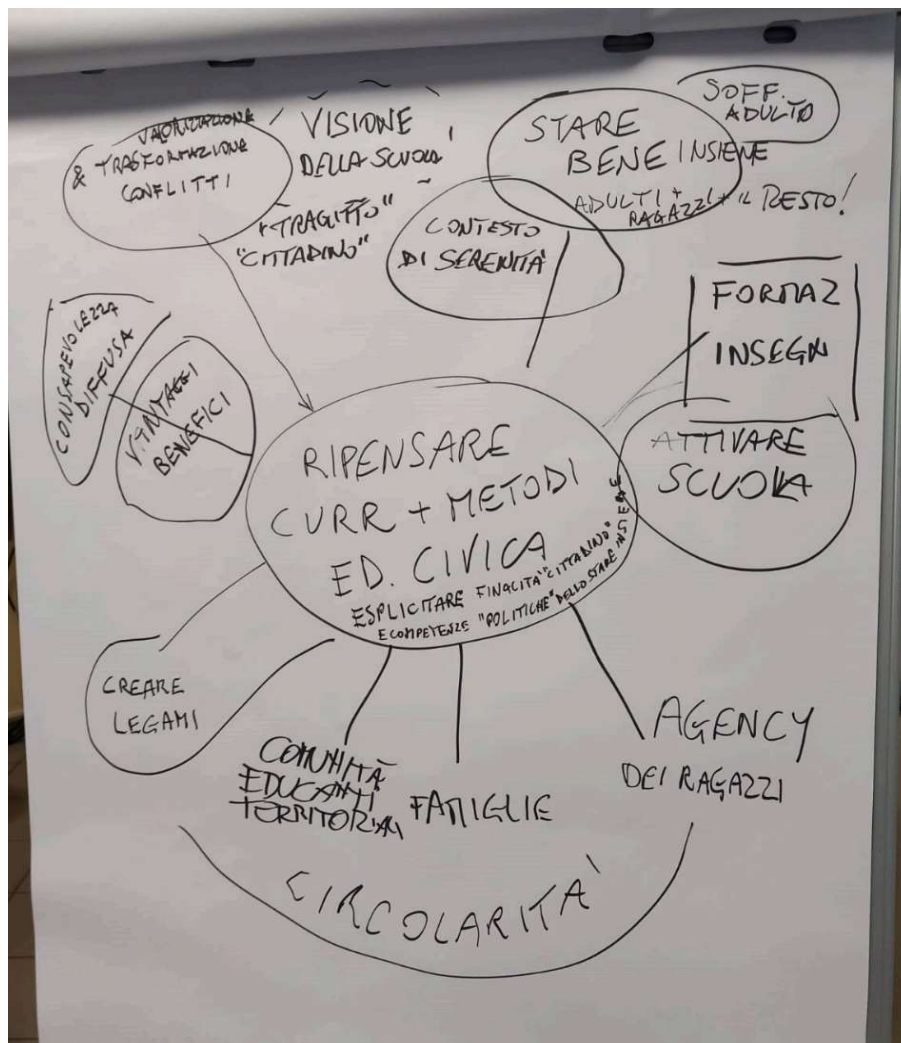 VALORIZZAZIONE
& TRASFORMAZIONE
CONFLITTI
VISIONE
DELLA SCUOLA
"TRAGITTO"
"CITTADINO"
STARE
BENE INSIEME
ADULTI +
RAGAZZI + IL RESTO!
SOFF.
ADULTO
CONTESTO
DI SERENITÀ
FORMAZ
INSEGN
ATTIVARE
SCUOLA
CONSAPEVOLEZZA
DIFFUSA
VANTAGGI
BENEFICI
RIPENSARE
CURR + METODI
ED. CIVICA
ESPLICITARE FINALITÀ "CITTADINO"
E COMPETENZE "POLITICHE" DELLO STARE INSIEME
CREARE
LEGAMI
COMUNITÀ
EDUCANTI
TERRITORIALI
FAMIGLIE
AGENCY
DEI RAGAZZI
CIRCOLARITÀ